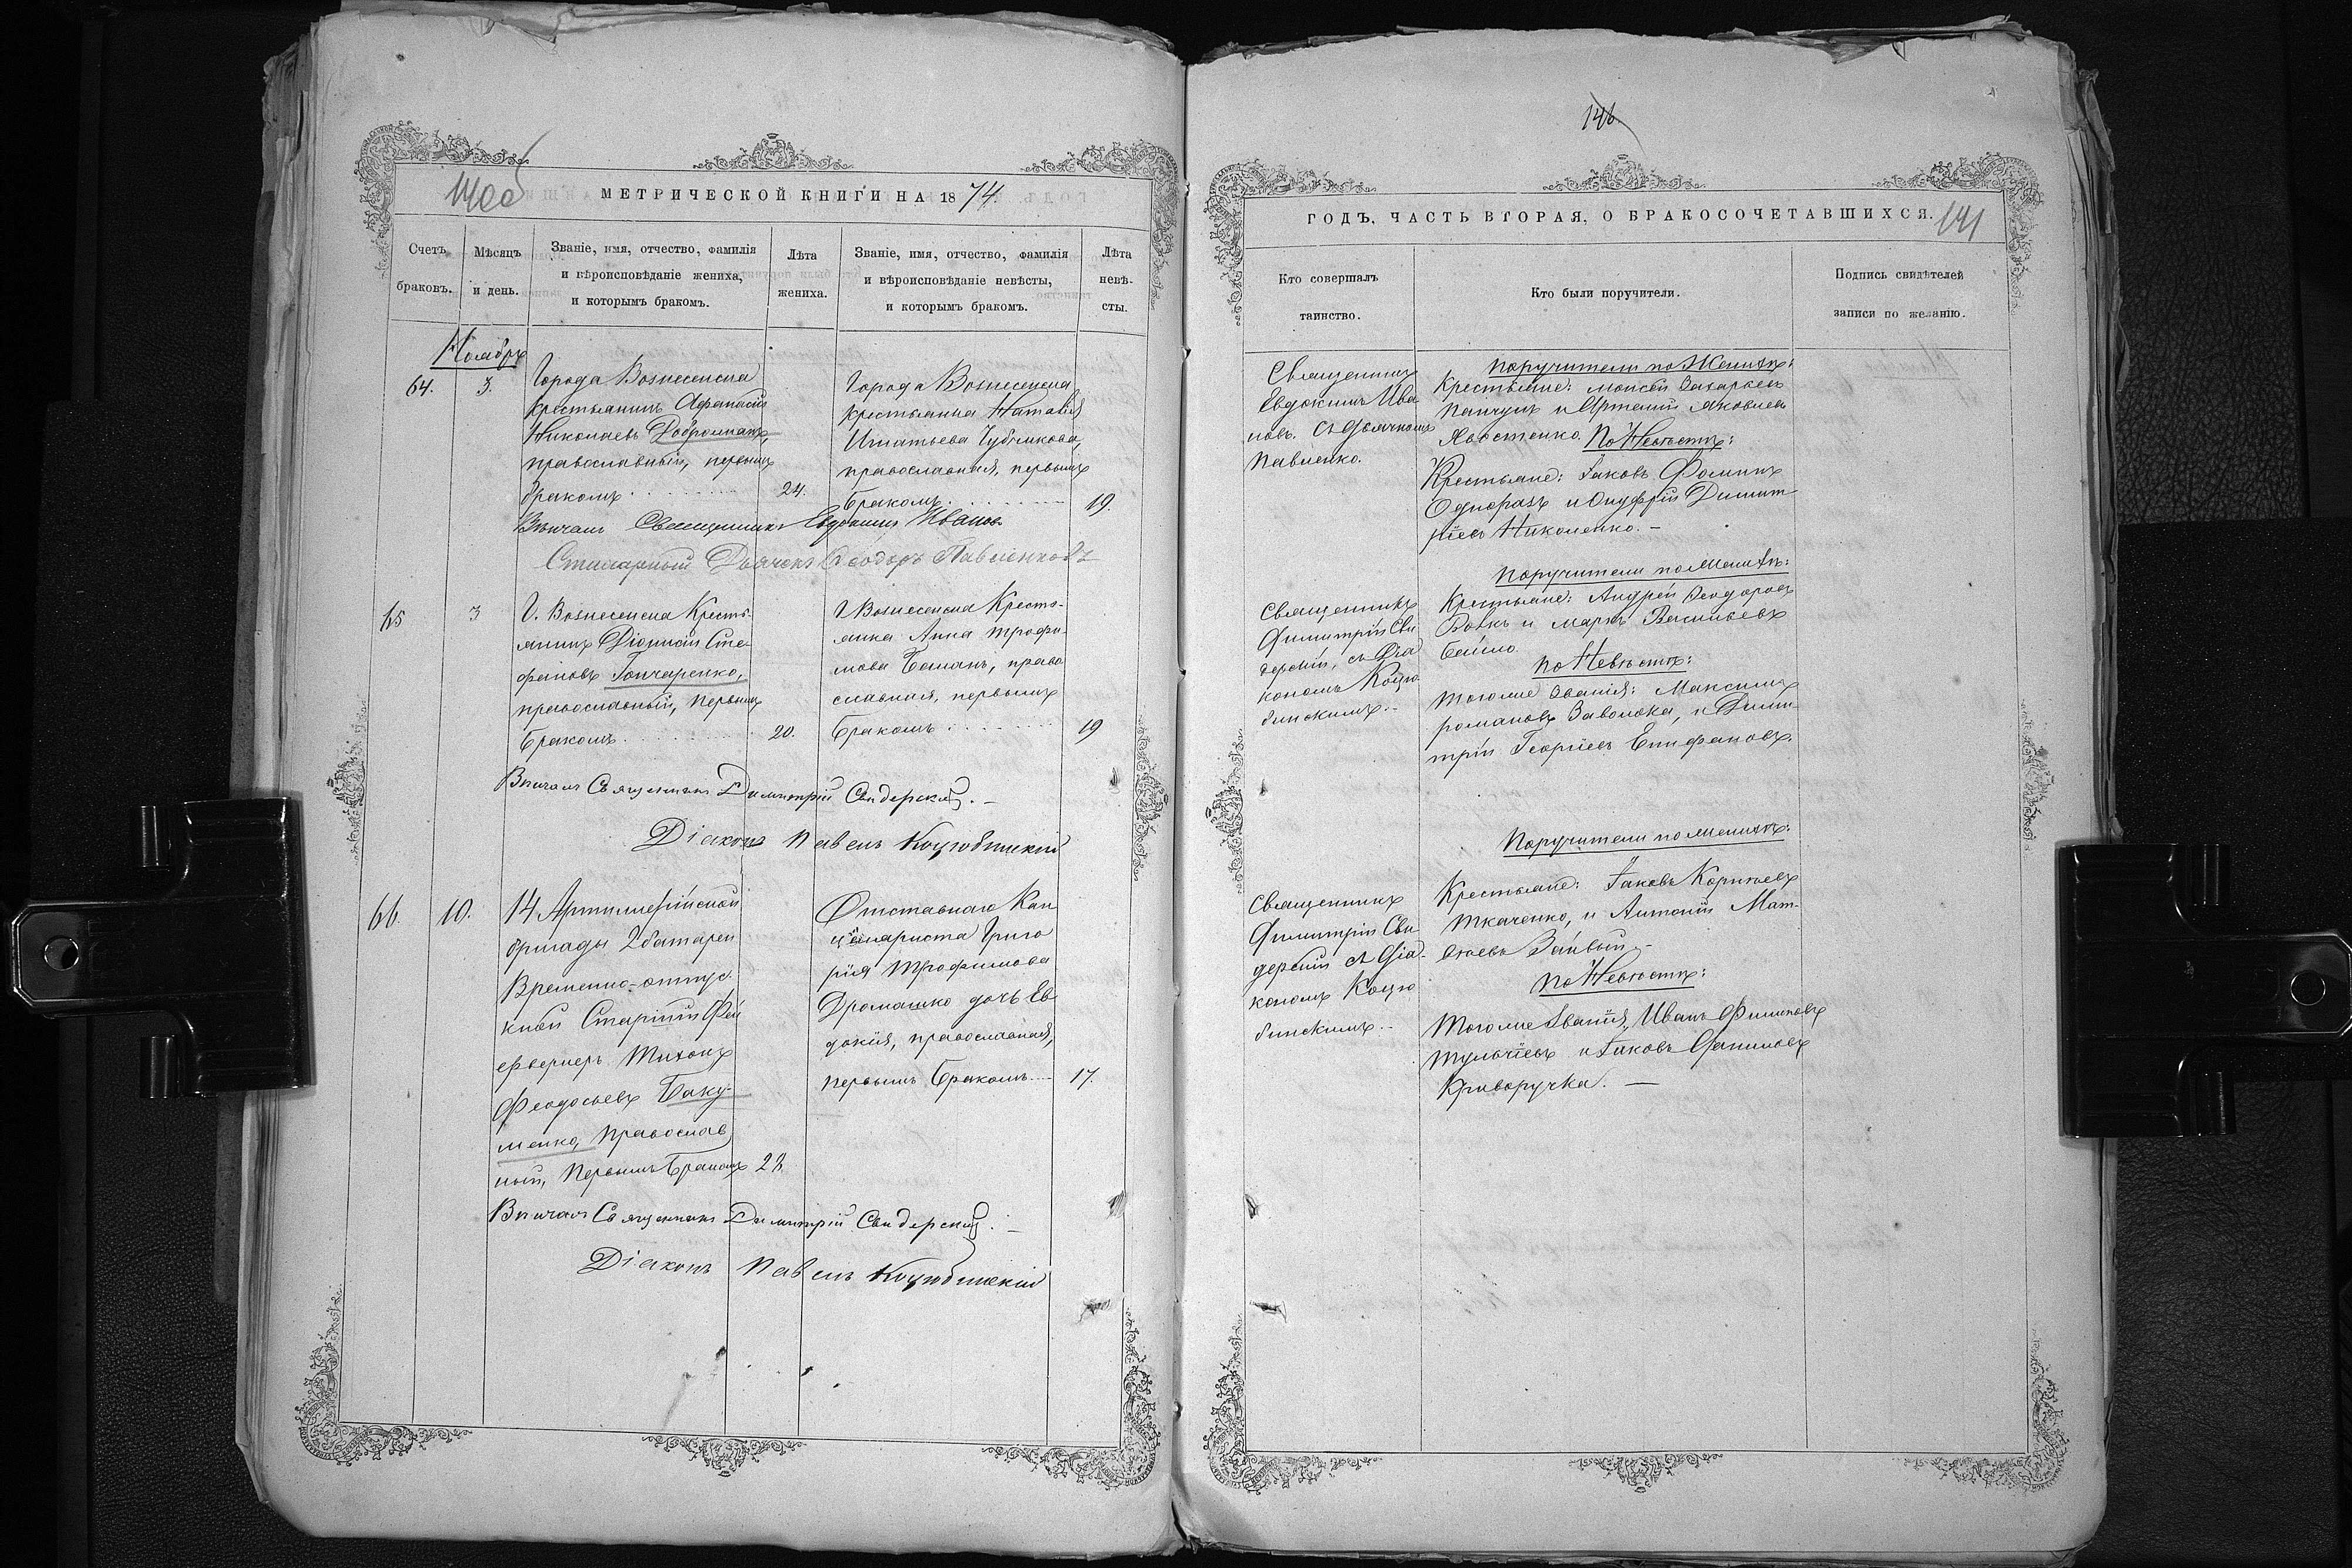 140об
МЕТРИЧЕСКОЙ КНИГИ НА 1874
Счетъ браковъ.
Мѣсяцъ и день.
Званіе, имя, отчество, фамилія
и вѣроисповѣданіе жениха,
и которымъ бракомъ.
Лѣта
жениха.
Званіе, имя, отчество, фамилія
и вѣроисповѣданіе невѣсты,
и которымъ бракомъ.
Лѣта
невѣ-
сты.
Ноябрь
64. 3.
Города Вознесенска
крестьянинъ Афанасій
Николаевъ Доброманъ,
православный, первымъ
бракомъ 24.
Города Вознесенска
крестьянка Наталія
Игнатьева Чубчикова,
православная, первымъ
бракомъ 19.
Вѣнчалъ Священникъ Евдокимъ Ивановъ
Стихарный Дьячокъ Ѳеодоръ Павленковъ
65 3
Г. Вознесенска Кресть-
янинъ Діонисій Сте-
фановъ Гончаренко,
православный, первымъ
бракомъ 20.
Г. Вознесенска Кресть-
янка Анна Трофи-
мова Баланъ, право
славная, первымъ
бракомъ 19
Вѣнчалъ Священникъ Димитрій Свидерскій.
Діаконъ Павелъ Коцюбинскій
66. 10.
14 Артиллерійской
бригады 2 батареи
Временно-отпус
кной Старшій Фей
ерверкеръ Тихонъ
Феодосьевъ Баку-
менко, православ
ный, первымъ бракомъ 28
Отставнаго Кан
целяриста Григо
рія Трофимова
Дромашко дочь Ев
докія, православная,
первымъ бракомъ 17.
Вѣнчалъ Священникъ Димитрій Свидерскій.
Діаконъ Павелъ Коцюбинскій
146
ГОДЪ, ЧАСТЬ ВТОРАЯ, О БРАКОСОЧЕТАВШИХСЯ. 141
Кто совершалъ
таинство.
Кто были поручители.
Подпись свидѣтелей
записи по желанію.
Священникъ
Евдокимъ Ива
новъ. съ Дьячкомъ
Павленко.
Поручители по Женихѣ:
Крестьяне: Моисей Захаріевъ
Панчукъ и Артемій Яковлевъ
Хвостенко. По Невѣстѣ:
Крестьяне: Іаковъ Фоминъ
Однорагъ и Онуфрій Димит
ріевъ Николенко. —
Священникъ
Димитрій Сви
дерскій, съ Діа
кономъ Коцю
бинскимъ. —
Поручители по Женихѣ:
Крестьяне: Андрей Ѳеодоровъ
Вовкъ и Маркъ Васильевъ
По Невѣстѣ:
тогоже званія: Максимъ
Романовъ Заволока, и Дими
трій Георгіевъ Епифановъ.
Священникъ
Димитрій Сви
дерскій съ Діа-
кономъ Коцю
бинскимъ. —
Поручители по Женихѣ:
Крестьяне: Іаковъ Корніевъ
Ткаченко, и Антоній Мат-
ѳіевъ —
По Невѣстѣ:
тогоже званія, Иванъ Филиповъ
Тульчіевъ и Іаковъ Даниловъ
Криворучка. —